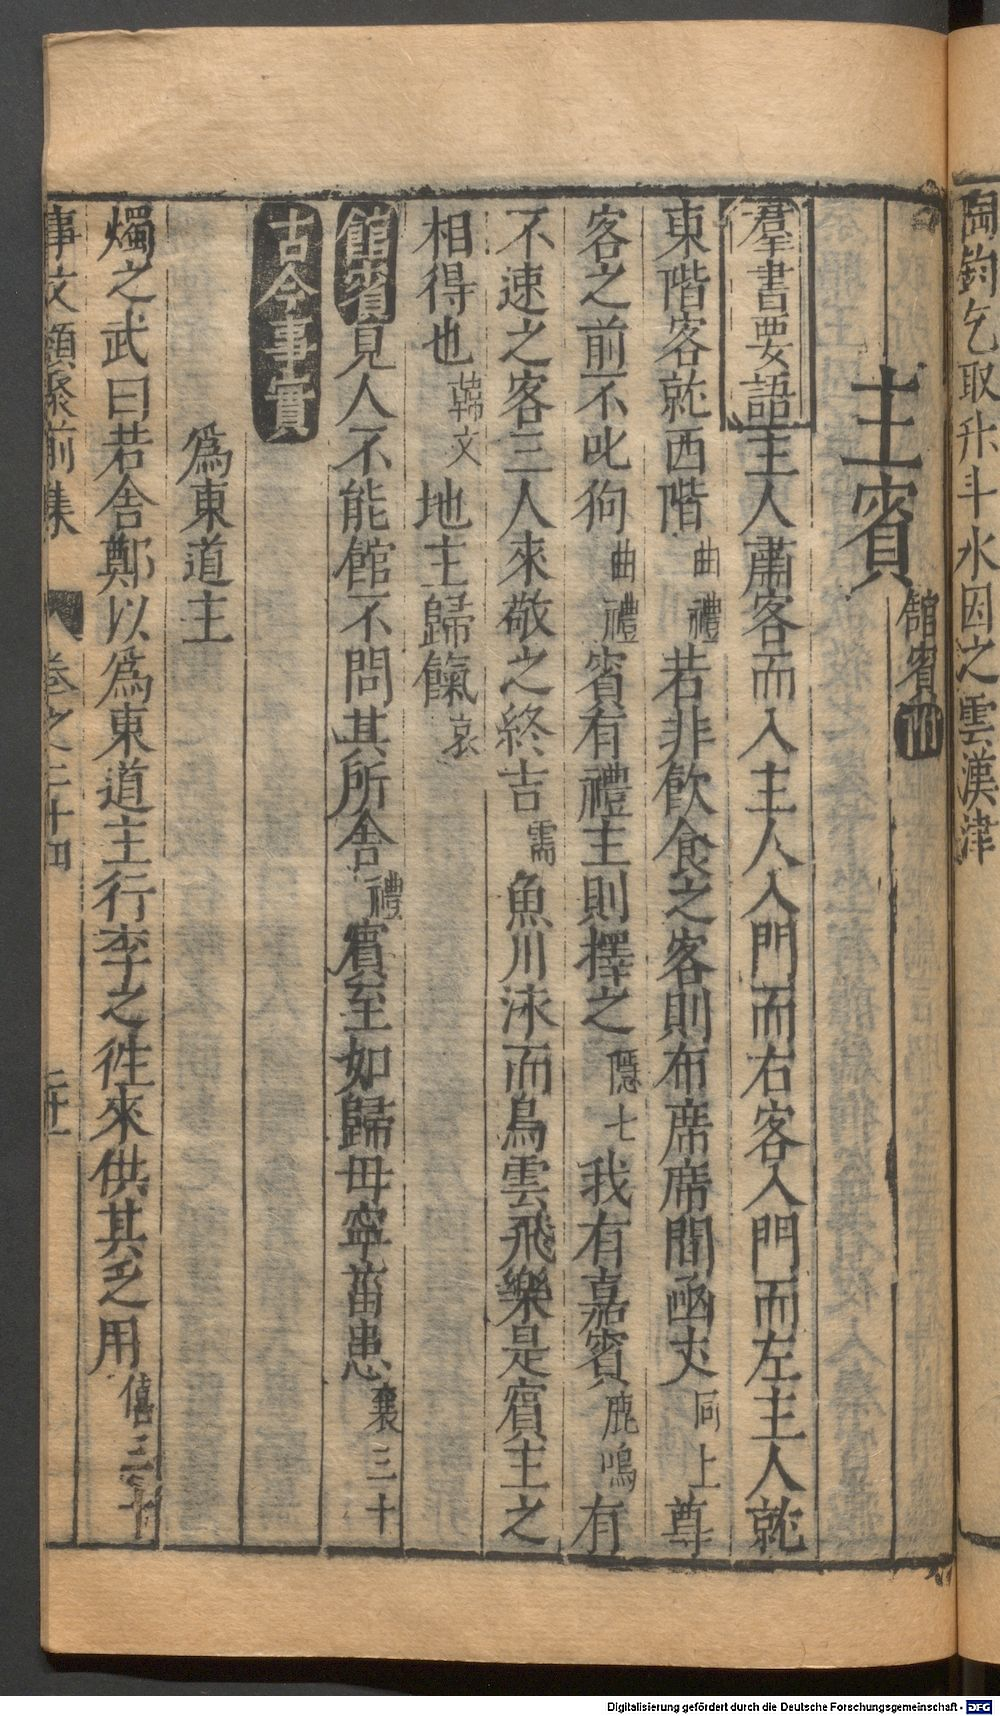 陶鈞乞取升斗水因之雲漢津
主賓 館賓附
羣書要語 主人肅客而入主人入門而右客入門而左主人就
東階客就西階 曲禮 若非飲食之客則布席席間函丈 同上 尊
客之前不叱狗 曲禮 賓有禮主則擇之 隱七 我有嘉賓 鹿鳴 有
不速之客三人來敬之終吉 需 魚川泳而鳥雲飛樂是賓主之
相得也 韓文 地主歸餼 哀
館賓 見人不能館不問其所舍 曲禮 賓至如歸毋寧菑患 襄三十
古今事實
爲東道主
燭之武曰若舍鄭以爲東道主行李之徃來供其乏用 僖三十
事文類聚前集 卷之二十四 二十一
Digitalisierung gefördert durch die Deutsche Forschungsgemeinschaft - DFG